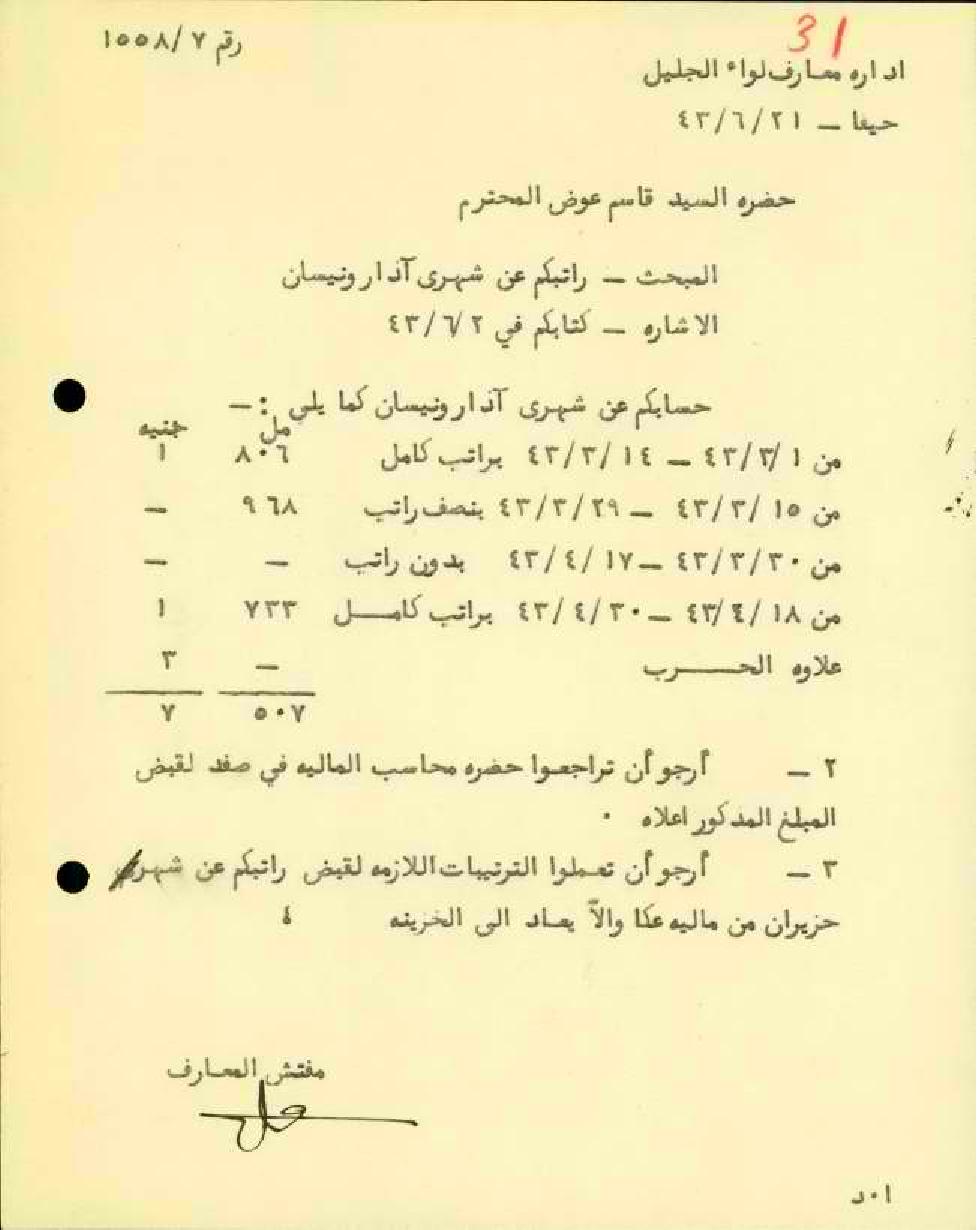 رقم ٧/١٥٥٨
31
اداره معارف لواء الجليل
حيفا – ٤٣/٦/٢١
حضره السيد قاسم عوض المحترم
المبحث – راتبكم عن شهرى آذار ونيسان
الاشاره – كتابكم في ٤٣/٦/٢
حسابكم عن شهرى آذار ونيسان كما يلي :–
مل جنيه
من ٤٣/٣/١ – ٤٣/٣/١٤ براتب كامل ٨٠٦ ١
من ٤٣/٣/١٥ – ٤٣/٣/٢٩ بنصف راتب ٩٦٨ –
من ٤٣/٣/٣٠ – ٤٣/٤/١٧ بدون راتب – –
من ٤٣/٤/١٨ – ٤٣/٤/٣٠ براتب كامــل ٧٣٣ ١
علاوه الحـــرب – ٣
٥٠٧ ٧
٢ – أرجو أن تراجعوا حضره محاسب الماليه في صفد لقبض
المبلغ المذكور اعلاه ٠
٣ – أرجو أن تعملوا الترتيبات اللازمه لقبض راتبكم عن شهر
حزيران من ماليه عكا والاّ يعاد الى الخزينه ؛
مفتش المعارف
ا٠د